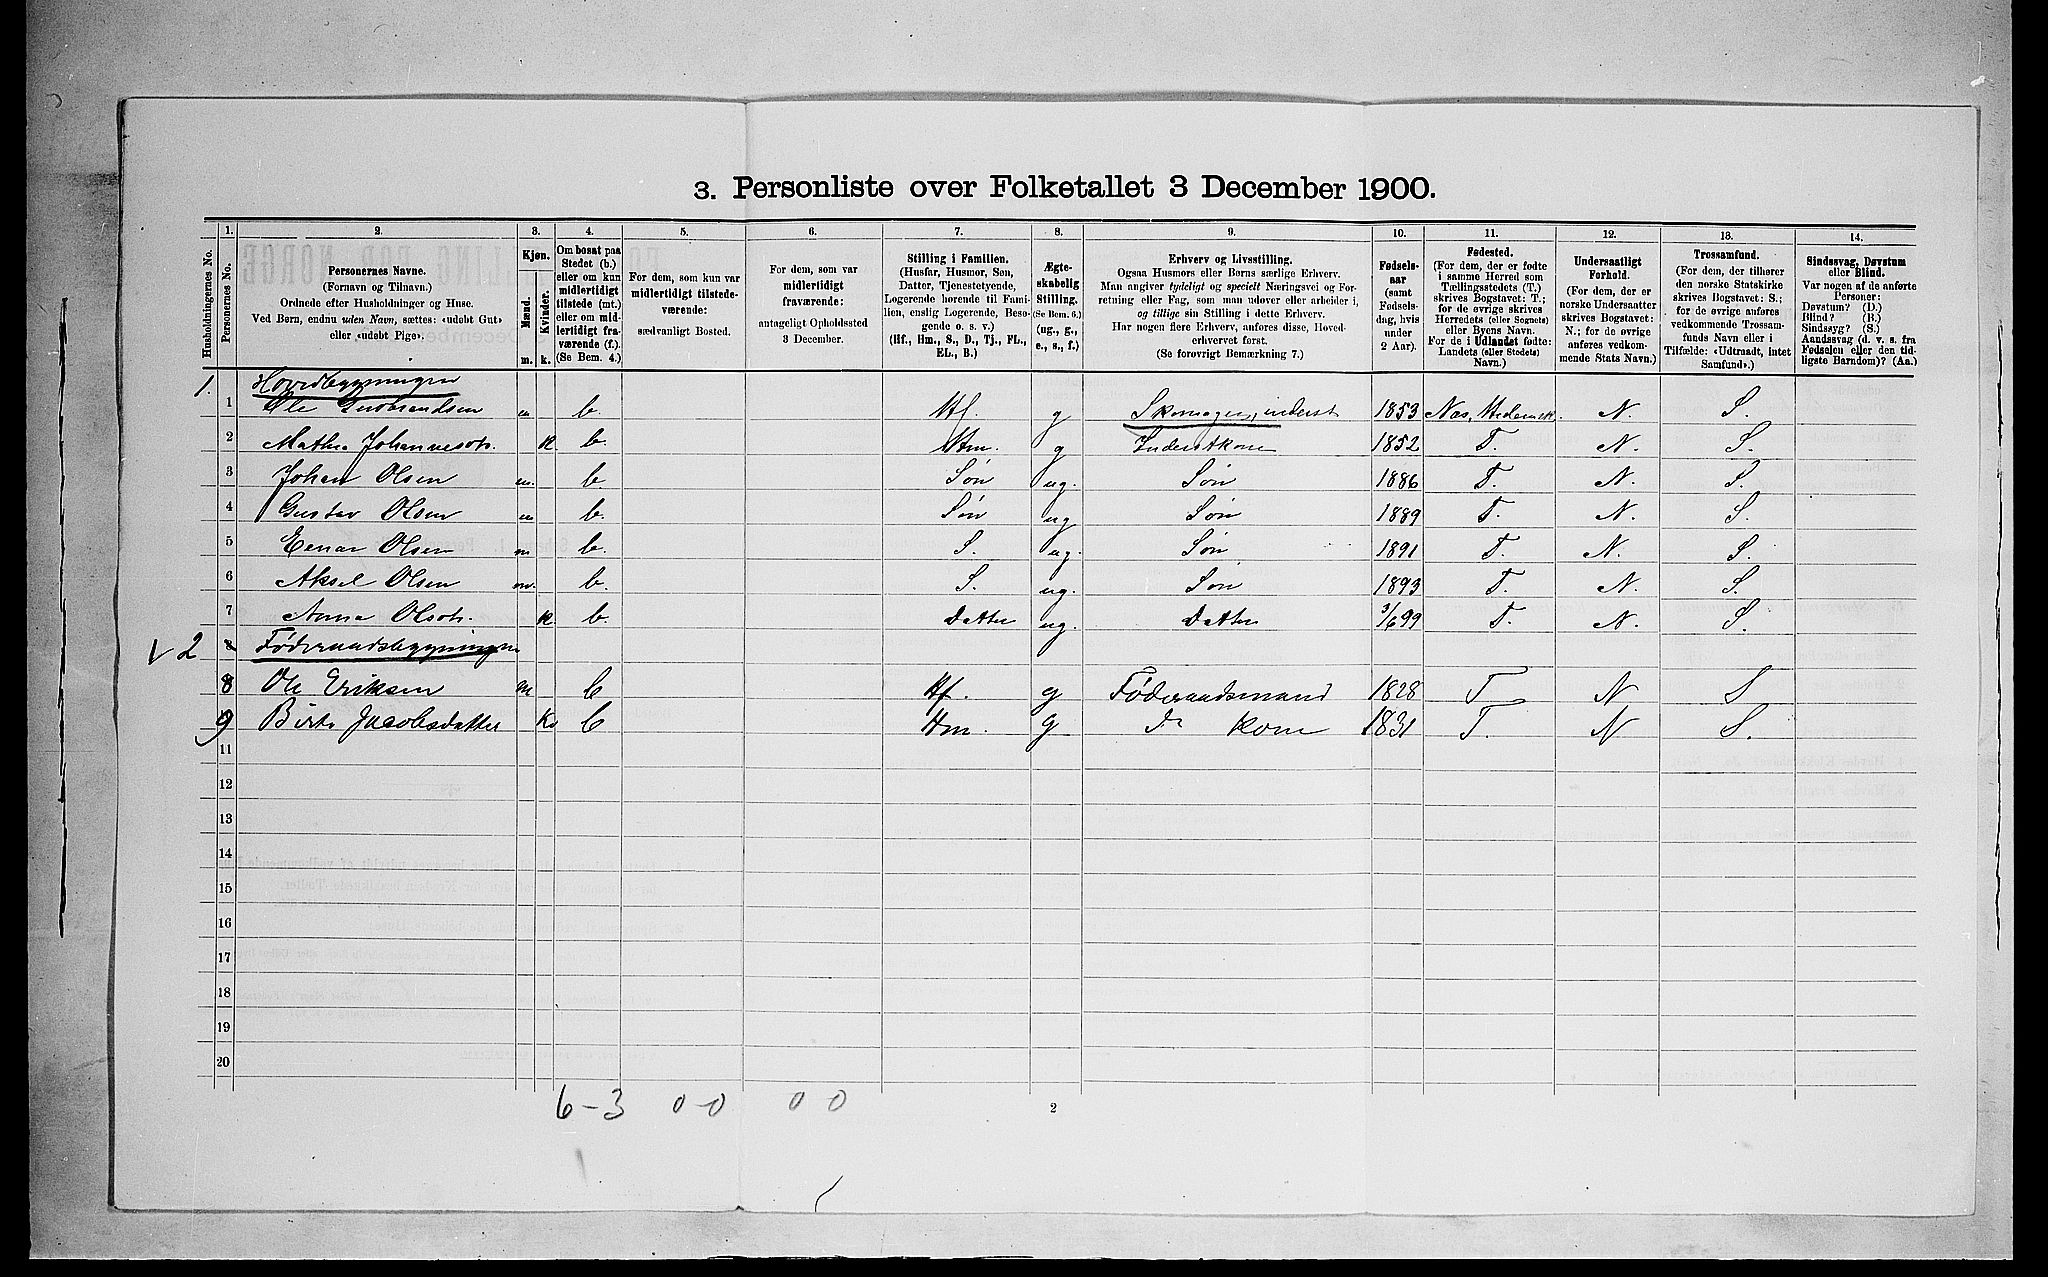 3. Personliste over Folketallet 3 December 1900.
Husholdningernes No.
1.
Personernes No.
2.
Personernes Navne.
(Fornavn og Tilnavn.)
Ordnede efter Husholdninger og Huse.
Ved Børn, endnu uden Navn, sættes: «udøbt Gut»
eller «udøbt Pige».
3.
Kjøn.
Mænd.
Kvinder.
m.
k.
4.
Om bosat paa
Stedet (b.)
eller om kun
midlertidigt
tilstede (mt.)
eller om mid-
lertidigt fra-
værende (f.).
(Se Bem. 4.)
5.
For dem, som kun var
midlertidigt tilstede-
værende:
sædvanligt Bosted.
6.
For dem, som var
midlertidigt
fraværende:
antageligt Opholdssted
3 December.
7.
Stilling i Familien.
(Husfar, Husmor, Søn,
Datter, Tjenestetyende,
Logerende hørende til Fami-
lien, enslig Logerende, Besø-
gende o. s. v.)
(Hf., Hm., S., D., Tj., FL.,
EL., B.)
8.
Ægte-
skabelig
Stilling.
(Se Bem. 6.)
(ug., g.,
e., s., f.)
9.
Erhverv og Livsstilling.
Ogsaa Husmors eller Børns særlige Erhverv.
Man angiver tydeligt og specielt Næringsvei og For-
retning eller Fag, som man udøver eller arbeider i,
og tillige sin Stilling i dette Erhverv.
Har nogen flere Erhverv, anføres disse, Hoved-
erhvervet først.
(Se forøvrigt Bemærkning 7.)
10.
Fødsels-
aar
(samt
Fødsels-
dag, hvis
under
2 Aar).
11.
Fødested.
(For dem, der er fødte
i samme Herred som
Tællingsstedets (T.)
skrives Bogstavet: T.;
for de øvrige skrives
Herredets (eller Sognets)
eller Byens Navn.
For de i Udlandet fødte:
Landets (eller Stedets)
Navn.)
12.
Undersaatligt
Forhold.
(For dem, der er
norske Undersaatter
skrives Bogstavet:
N.; for de øvrige
anføres vedkom-
mende Stats Navn.)
13.
Trossamfund.
(For dem, der tilhører
den norske Statskirke
skrives Bogstavet: S.;
for de øvrige anføres
vedkommende Trossam-
funds Navn eller i
Tilfælde: «Udtraadt, intet
Samfund».)
14.
Sindssvag, Døvstum
eller Blind.
Var nogen af de anførte
Personer:
Døvstum? (D.)
Blind? (B.)
Sindssyg? (S.)
Aandssvag (d. v. s. fra
Fødselen eller den tid-
ligste Barndom)? (Aa.)
1. Hovedbygningen
1 Ole Gudbrandsen m b. Hf. g Skomager, inderst 1853 Nes, Hedemk. N. S.
2 Mathea Johannesdt. k b. Hm. g Inderstkone 1852 T. N. S.
3 Johan Olsen m. b. Søn ug. Søn 1886 T. N. S.
4 Gustav Olsen m b. Søn ug Søn 1889 T. N. S.
5 Einar Olsen m b. S. ug. Søn 1891 T. N. S.
6 Aksel Olsen m. b. S. ug. Søn 1893 T. N. S.
7 Anna Olsdt. k b. Datter ug. Datter 3/6 99 T. N. S.
v 2 8 Føderaadsbygningen
8 Ole Eriksen m b Hf. g Føderaadsmand 1828 T N S
9 Birte Jacobsdatter k b Hm. g do kone 1831 T. N S.
11
12
13
14
15
16
17
18
19
20
6-3 0-0 0 0
2